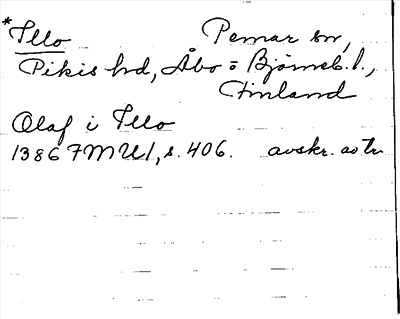 *Illo Pemar sn,
Pikis hd, Åbo o Björneb. l.,
Finland
Olaf i Illo
1386 FMU1, s. 406. avskr. av tr.